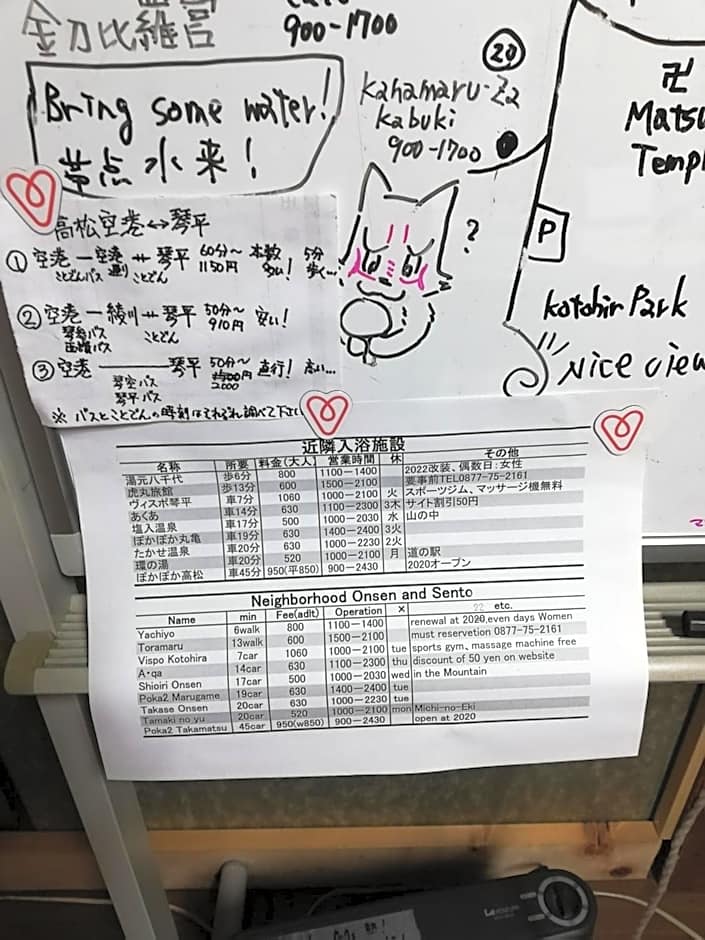 金刀比羅宮
900-1700
Bring some water!
水来!
20
Kanamaru-Za
Kabuki
900-1700
卍
Matsu
Temp
P
Kotohir Park
Nice view
?
高松空港↔琴平
① 空港 — 空港通り 琴平 60分~ 1150円 本数多い! 5分歩く...
ことでんバス ことでん
② 空港 — 綾川 琴平 50分~ 910円 安い!
琴参バス ことでん
西讃バス
③ 空港 琴平 50分~ 2000 直行! 高い...
琴空バス
琴平バス
※ バスとことでんの時刻はそれぞれ調べて下さい
近隣入浴施設
名称 所要 料金(大人) 営業時間 休 その他
湯元八千代 歩6分 800 1100-1400 2022改装、偶数日:女性
虎丸旅館 歩13分 600 1500-2100 要事前TEL0877-75-2161
ヴィスポ琴平 車7分 1060 1000-2100 火 スポーツジム、マッサージ機無料
あくあ 車14分 630 1100-2300 3木 サイト割引50円
塩入温泉 車17分 500 1000-2030 水 山の中
ぽかぽか丸亀 車19分 630 1400-2400 3火
たかせ温泉 車20分 630 1000-2230 2火
環の湯 車20分 520 1000-2100 月 道の駅
ぽかぽか高松 車45分 950(平850) 900-2430 2020オープン
Neighborhood Onsen and Sento
Name min Fee(adlt) Operation × etc.
22
Yachiyo 6walk 800 1100-1400 renewal at 2020,even days Women
Toramaru 13walk 600 1500-2100 must reservetion 0877-75-2161
Vispo Kotohira 7car 1060 1000-2100 tue sports gym, massage machine free
A・qa 14car 630 1100-2300 thu discount of 50 yen on website
Shioiri Onsen 17car 500 1000-2030 wed in the Mountain
Poka2 Marugame 19car 630 1400-2400 tue
Takase Onsen 20car 630 1000-2230 tue
Tamaki no yu 20car 520 1000-2100 mon Michi-no-Eki
Poka2 Takamatsu 45car 950(w850) 900-2430 open at 2020